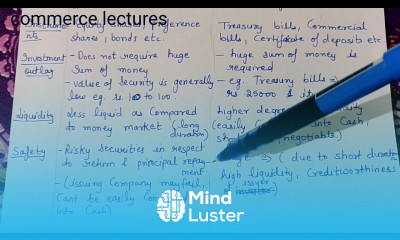 commerce lectures
Equity shares, preference shares, bonds etc.
Treasury bills, Commercial bills, Certificate of deposits etc.
Investment outlay
- Does not require huge sum of money
- value of security is generally low eg. is 10 to 100.
- huge sum of money is required
- eg. Treasury bills ⇒ 25000 &
Liquidity
Less liquid as Compared to money market (long duration)
higher degree
(easily Cash, negotiable)
Safety
- Risky securities in respect to return & principal repayment
- (issuing Company may fail, Cant be easily into Cash)
⇒ (due to short duration high liquidity, Creditworthiness
issuer
Mind
Luster